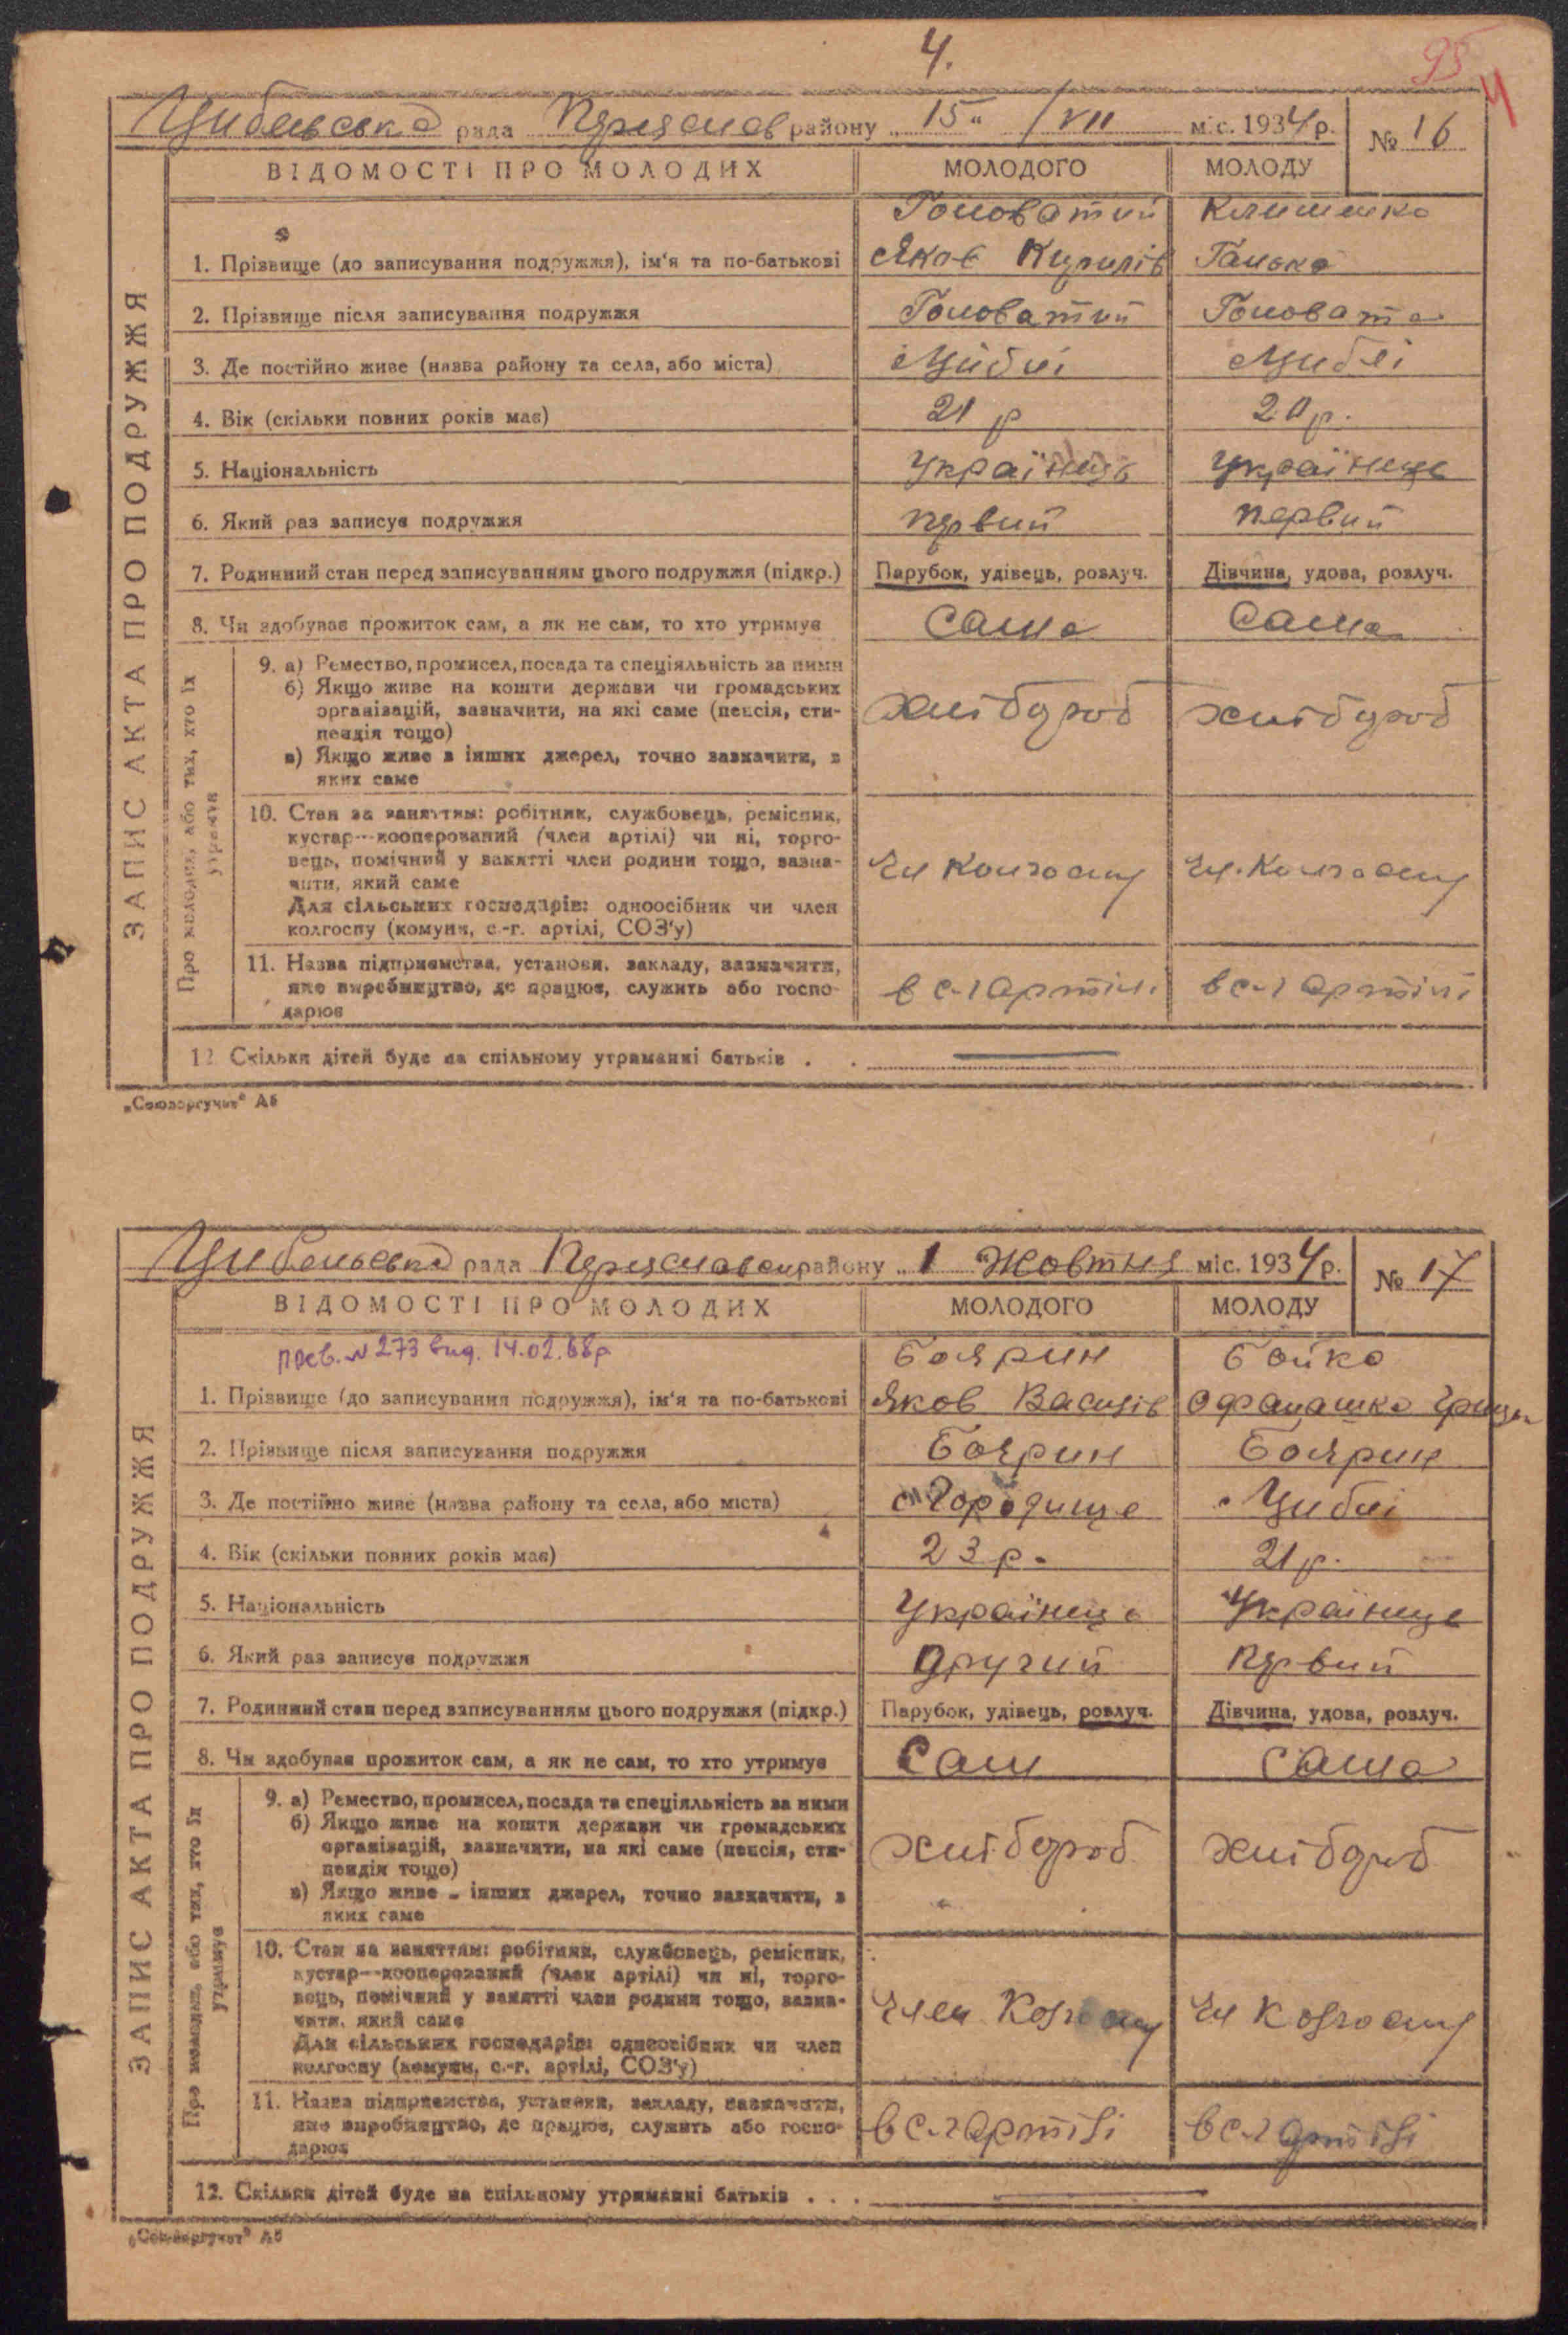 4.
95
4
Цибельська рада Переяслов району „ 15 “ /VII міс. 1934 р. № 16
ВІДОМОСТІ ПРО МОЛОДИХ МОЛОДОГО МОЛОДУ
ЗАПИС АКТА ПРО ПОДРУЖЖЯ
Головатий Клименко
1. Прізвище (до записування подружжя), ім'я та по-батькові Яков Кирилів Ганька
2. Прізвище після записування подружжя Головатий Головата
3. Де постійно живе (назва району та села, або міста) Циблі Циблі
4. Вік (скільки повних років має) 21 р 20 р.
5. Національність Українець Українець
6. Який раз записує подружжя первий первий
7. Родинний стан перед записуванням цього подружжя (підкр.) Парубок, удівець, розлуч. Дівчина, удова, розлуч.
8. Чи здобував прожиток сам, а як не сам, то хто утримує сама сама
Про молодих, або тих, хто їх утримує
9. а) Ремество, промисел, посада та спеціяльність за ними
б) Якщо живе на кошти держави чи громадських
організацій, зазначити, на які саме (пенсія, сти-
пендія тощо) хлібороб хлібороб
в) Якщо живе з інших джерел, точно зазначити, з
яких саме
10. Стан за заняттям: робітник, службовець, ремісник,
кустар—кооперований (член артілі) чи ні, торго-
вець, помічний у занятті член родини тощо, зазна-
чити, який саме Чл Колгоспу Чл. Колгоспу
Для сільських господарів: одноосібник чи член
колгоспу (комуни, с.-г. артілі, СОЗ'у)
11. Назва підприємства, установи, закладу, зазначити,
яке виробництво, де працює, служить або госпо-
дарює в с-г артілі в с-г артілі
12. Скільки дітей буде на спільному утриманні батьків . .
„Союзоргучет“ Аб
Цибельська рада Переяславськ району „ 1 Жовтня міс. 1934 р. № 17
ВІДОМОСТІ ПРО МОЛОДИХ МОЛОДОГО МОЛОДУ
ЗАПИС АКТА ПРО ПОДРУЖЖЯ
№ 273 вид. 14.02.68р Боярин Бойко
1. Прізвище (до записування подружжя), ім'я та по-батькові Яков Василів
2. Прізвище після записування подружжя Боярин Боярин
3. Де постійно живе (назва району та села, або міста) Городище Циблі
4. Вік (скільки повних років має) 23 р. 21 р.
5. Національність Українець Українець
6. Який раз записує подружжя другий первий
7. Родинний стан перед записуванням цього подружжя (підкр.) Парубок, удівець, розлуч. Дівчина, удова, розлуч.
8. Чи здобував прожиток сам, а як не сам, то хто утримує сам сама
Про молодих, або тих, хто їх утримує
9. а) Ремество, промисел, посада та спеціяльність за ними
б) Якщо живе на кошти держави чи громадських
організацій, зазначити, на які саме (пенсія, сти-
пендія тощо) хлібороб хлібороб
в) Якщо живе з інших джерел, точно зазначити, з
яких саме
10. Стан за заняттям: робітник, службовець, ремісник,
кустар—кооперований (член артілі) чи ні, торго-
вець, помічний у занятті член родини тощо, зазна-
чити, який саме Член Колгоспу Чл Колгоспу
Для сільських господарів: одноосібник чи член
колгоспу (комуни, с.-г. артілі, СОЗ'у)
11. Назва підприємства, установи, закладу, зазначити,
яке виробництво, де працює, служить або госпо-
дарює в с-г артілі в с-г артілі
12. Скільки дітей буде на спільному утриманні батьків . . .
„Союзоргучет“ Аб